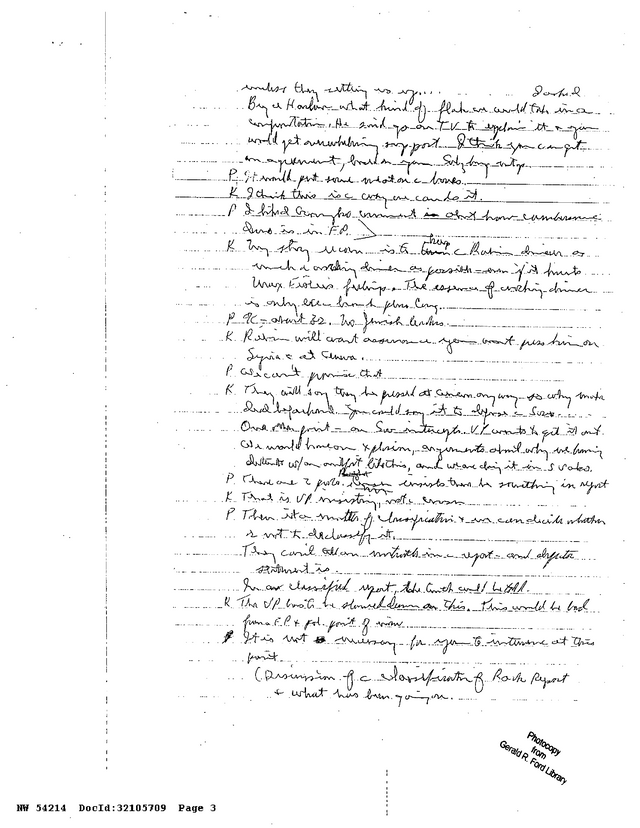 unless they setting us up... I asked
Bryce Harlow what kind of flak we would take in a
confrontation. He said go on TV to explain it & you
would get overwhelming support. I think you can get
an agreement, based on your Salzburg mtgs.
P It would put some meat on c bones.
K I think this is c only we can do it.
P I liked comment about how cumbersome
Cong is in F.P.
K My strong recom is to keep c Rabin dinner as
much c working dinner as possible – even if it hurts
feelings. The essence of working dinner
is only exec branch plus Cong.
P OK – about 32. No Jewish leaders.
K Rabin will want assurance you won't press him on
Syria & at Geneva.
P We can't promise that
K They will say they be pressed at Geneva anyway – so why make
deal beforehand. You could say it to
One other point – on Sov intercepts. VP wants to get it out.
We would have an explosion, arguments about why we having
detente w/an outfit like this, and we are doing it in
P There are 2 probs. insists there be something in report
K That is VP insisting, not c
P Then it's c matter of classification & we can decide whether
or not to declassify it.
They can't tell an untruth in c report – and
statement is.
In c classified report, the truth could be told.
K The VP has to be slowed down on this. This would be bad
from c F.P. & pol. point of view.
P It is not necessary for you to intervene at this
point.
(Discussion of c classification of Rock Report
& what has been going on.
Photocopy
from
Gerald R. Ford Library
NW 54214 DocId:32105709 Page 3